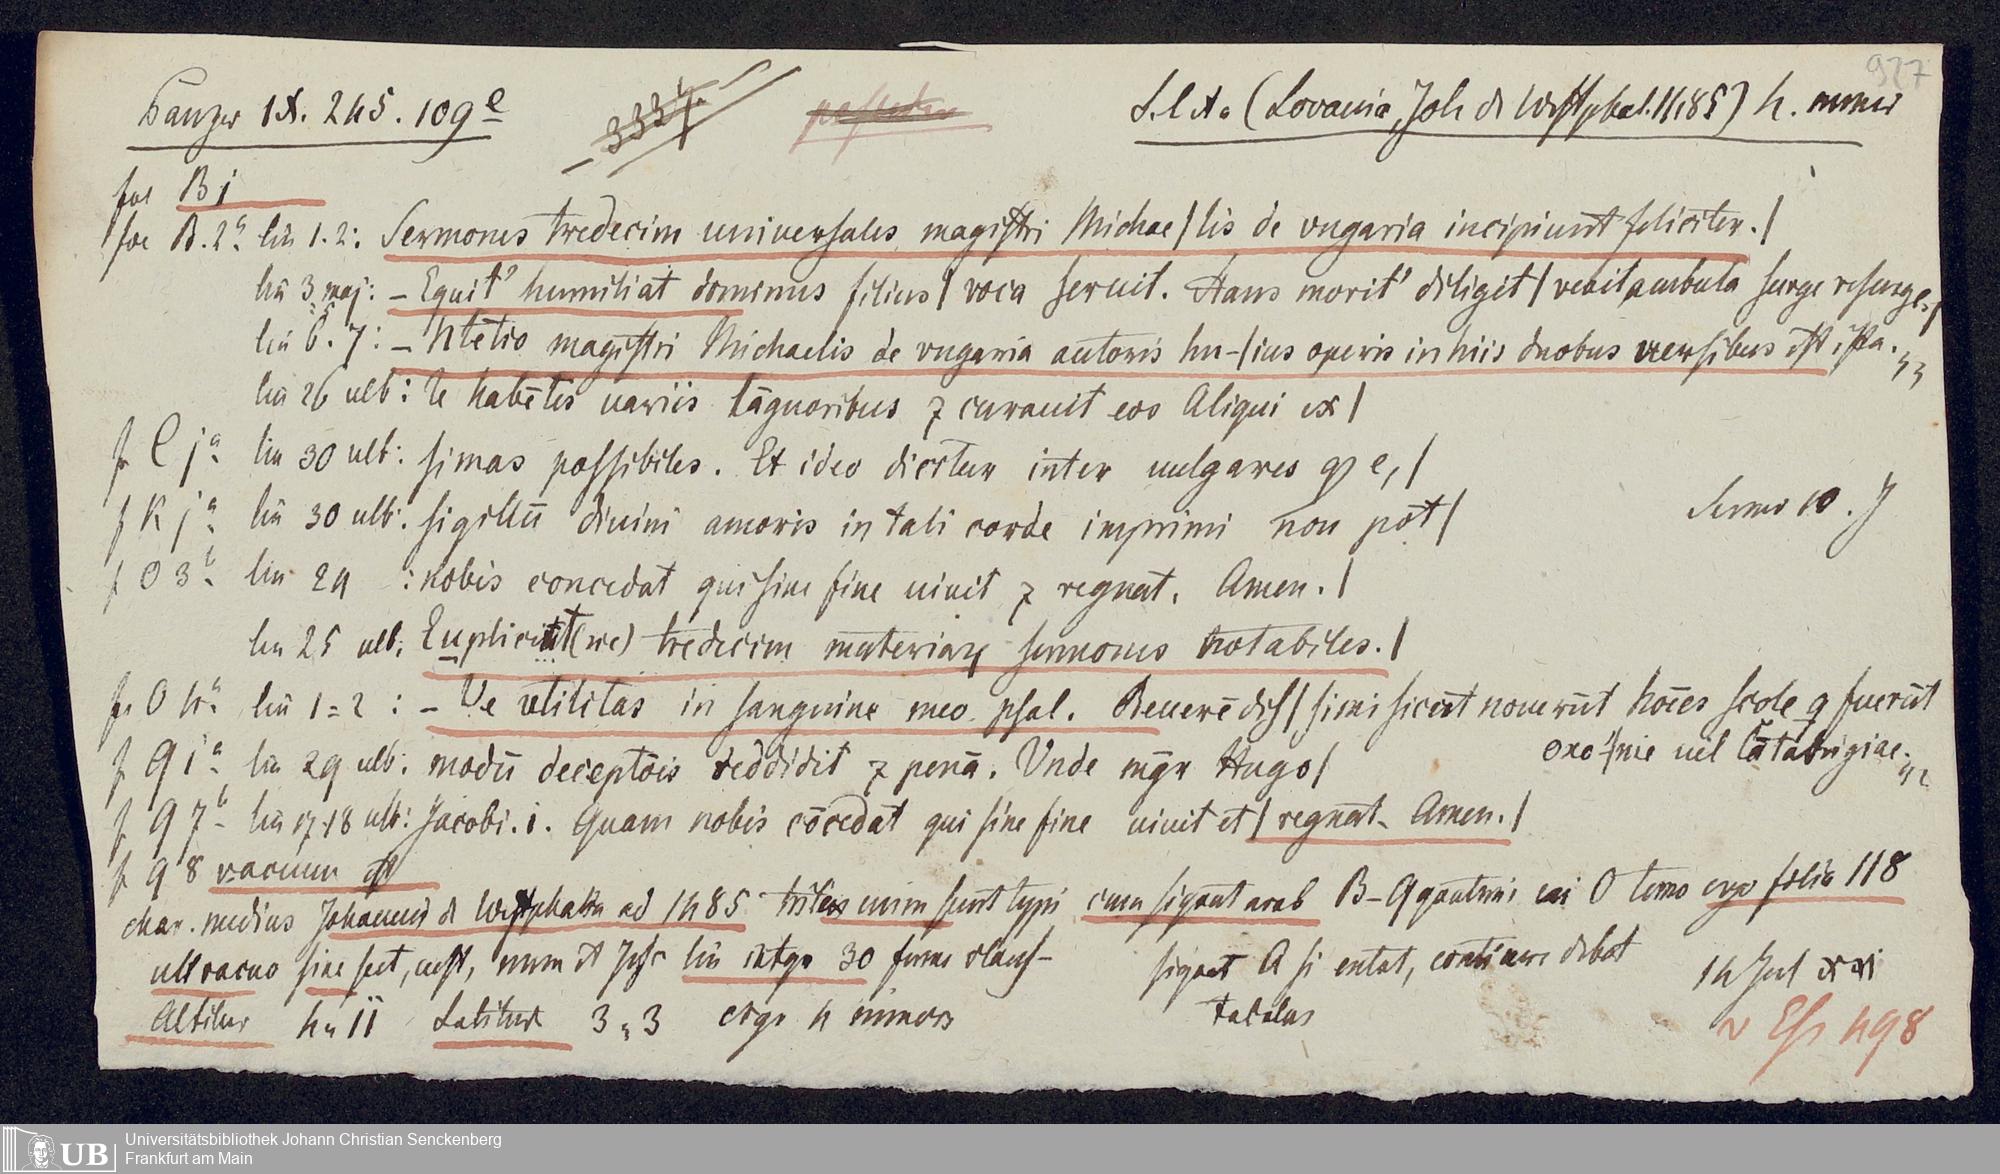 927
Panzer IX. 245. 109e
3334.
S. l. A. (Lovania, Joh de Westphal. 1485) 4. minor
fol B j
fol B. 2a lin 1. 2: Sermones tredecim universales magistri Michae/lis de vngaria incipiunt feliciter./
lin 3 maj: – Equit' humiliat dominus filius/ voca seruit. Stans morit' diligit/ venit ambula surge resurge./
lin 6. 7: – ntetio magistri Michaelis de vngaria autoris hu-/ius operis in hiis duobus versibus est ista.
lin 26 ulb: te habētes uariis lāguoribus ⁊ curauit eos Aliqui ex/
f C ja lin 30 ulb: simas possibiles. Et ideo dicitur inter uulgares
f K ja lin 30 ulb: sigillū diuini amoris in tali corde imprimi non pōt/
Sermo 10. J
f O 3b lin 24 : nobis concedat qui sine fine uiuit ⁊ regnat. Amen./
lin 25 ulb: Expliciūt (sic) tredecim materiar sermones notabiles./
f O 4a lin 1=2 : – Ve vtilitas in sanguine meo psal. Reuerēdis/simi sicut nouerūt hoīes scole q fuerūt
oxo/nie uel Cātabrigiae.
f q 1a lin 29 ulb: modū deceptōis reddidit ⁊ penā. Vnde mgr Hugo/
f q 7b lin 17.18 ulb: Jacobi. i. Quam nobis cōcedat qui sine fine uiuit et/ regnat. Amen./
f q 8 vacuum est
char. medius Johannis de Westphalia ad 1485 enim sunt typi cum signat arab B–Q quaterni O terno ergo folia 118
ult vacuo sine lin integr 30 forma
signat A si extat, continere debet
14 Jul
Altitur 4" 11 Latitur 3" 3 ergo 4 minor
tabulas
v Ess 498
UB
Universitätsbibliothek Johann Christian Senckenberg
Frankfurt am Main